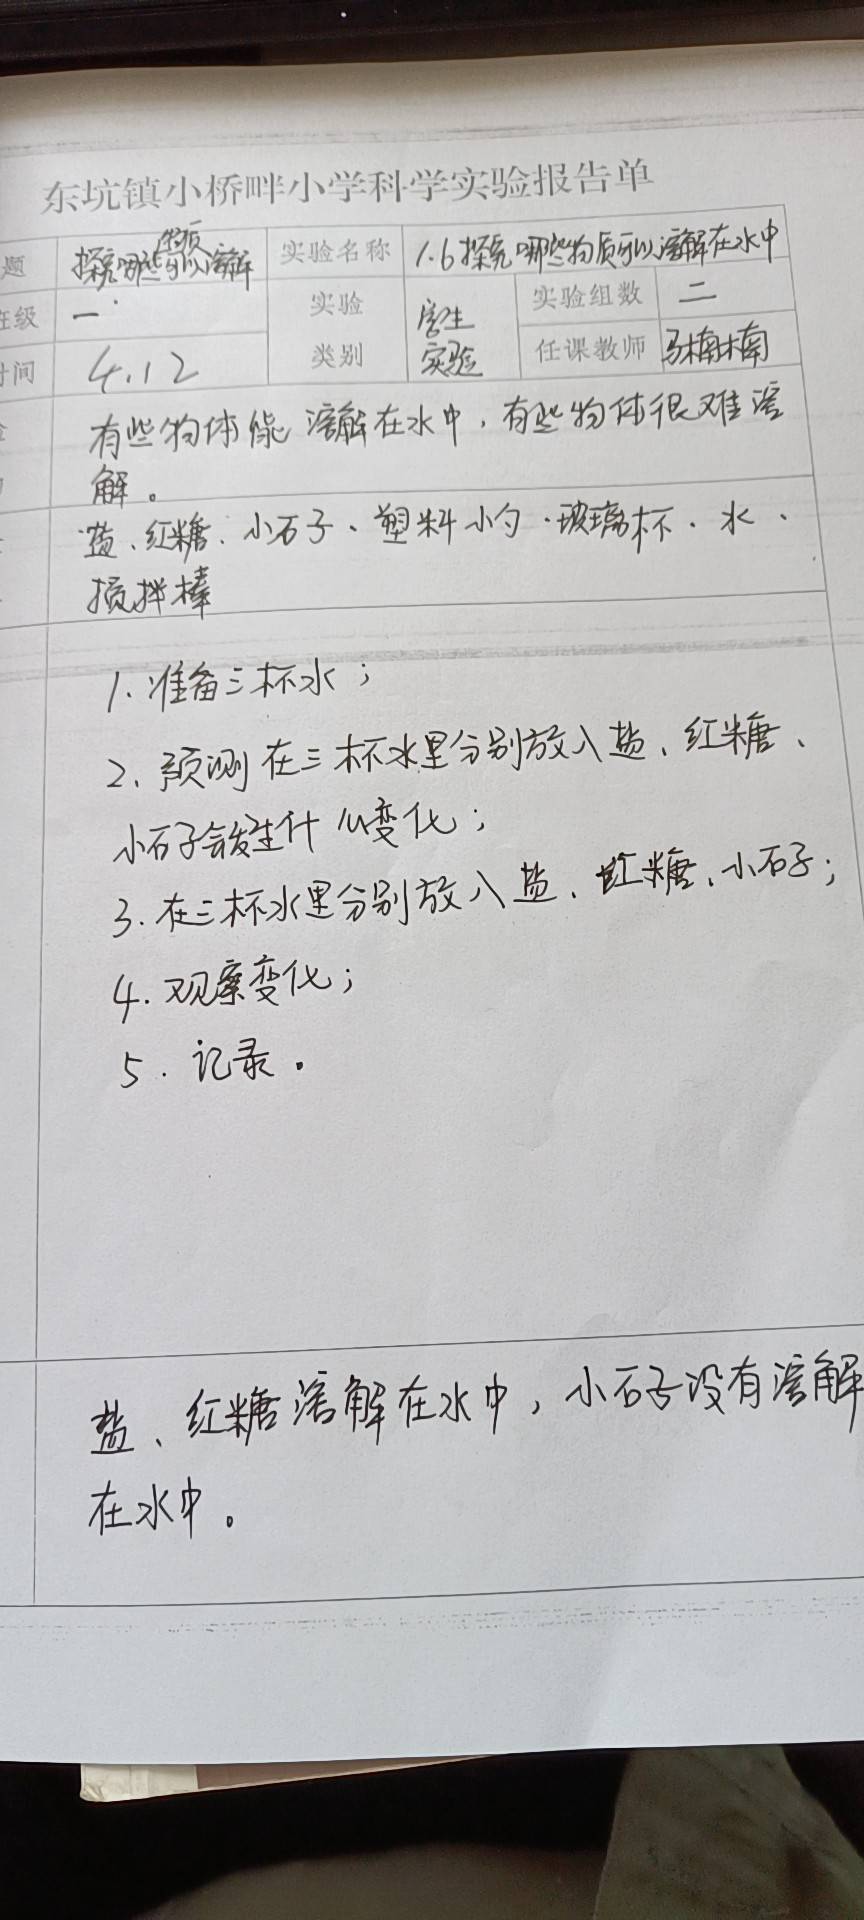 东坑镇小桥畔小学科学实验报告单
题 探究哪些物质可以溶解 实验名称 1.6探究哪些物质可以溶解在水中
班级 一 实验类别 学生实验 实验组数 二
时间 4.12 任课教师 马楠楠
有些物体能溶解在水中，有些物体很难溶
解。
盐、红糖、小石子、塑料小勺、玻璃杯、水、
搅拌棒
1.准备三杯水；
2.预测在三杯水里分别放入盐、红糖、
小石子会发生什么变化；
3.在三杯水里分别放入盐、红糖、小石子；
4.观察变化；
5.记录。
盐、红糖溶解在水中，小石子没有溶解
在水中。